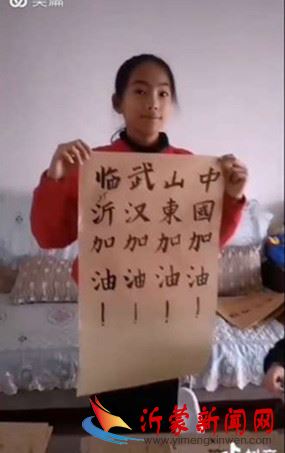 中國加油！
山東加油！
武汉加油！
临沂加油！
沂蒙新闻网
www.yimengxinwen.com